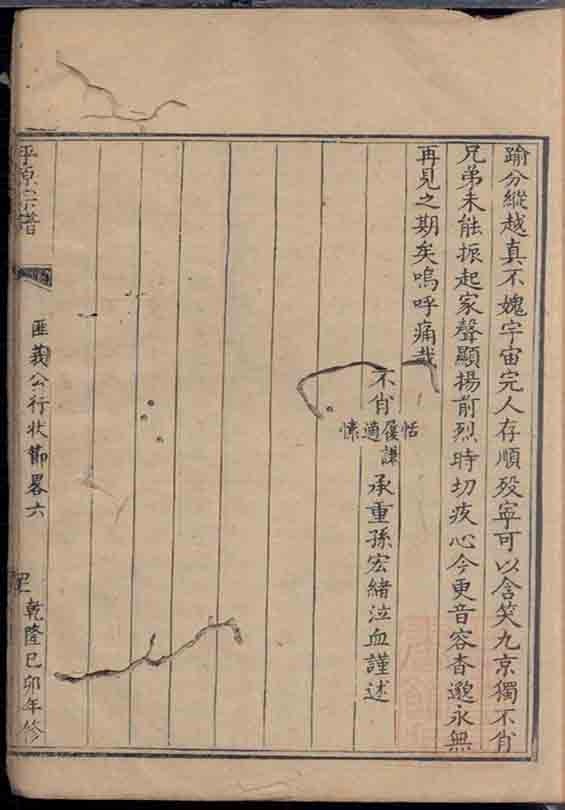 踰分縱越真不媿宇宙完人存順歿寧可以含笑九京獨不肖
兄弟未能振起家聲顯揚前烈時切疚心今更音容杳邈永無
再見之期矣嗚呼痛哉
不肖
恬優適愫
謙
承重孫宏緒泣血謹述
平原宗譜
匪莪公行狀節畧六
乾隆己卯年修